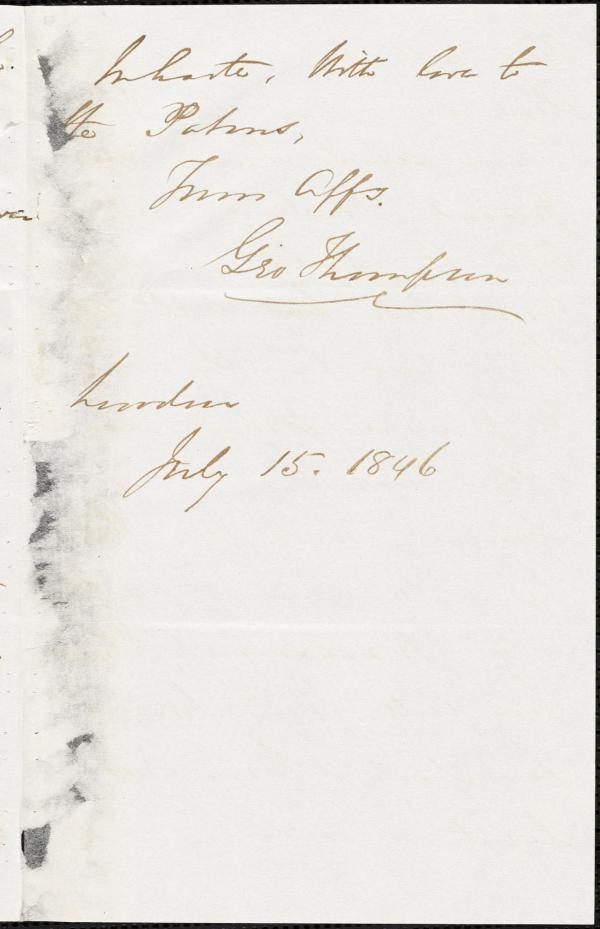 In haste, With love to
the Patons,
Yours Affy.
Geo Thompson
London
July 15. 1846